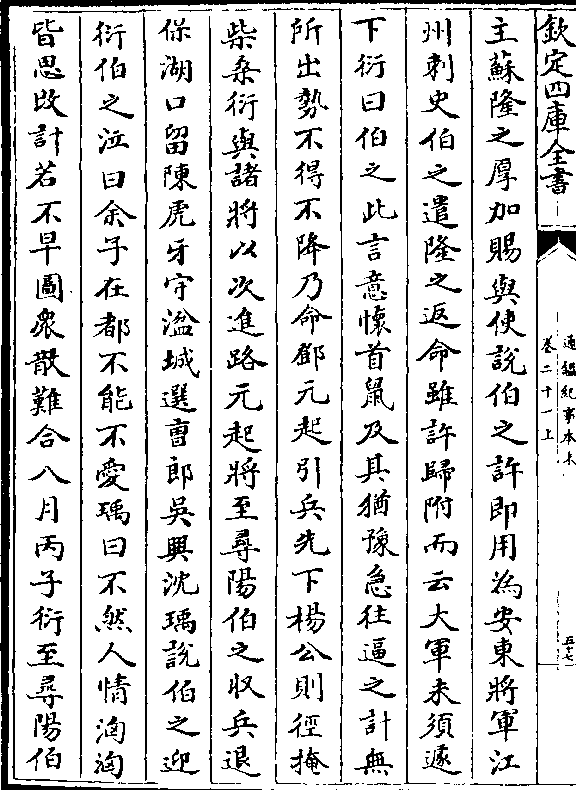 欽定四庫全書
通鑑紀事本末
卷二十一上
五十七
主蘇隆之厚加賜與使説伯之許即用為安東將軍江
州刺史伯之遣隆之返命雖許歸附而云大軍未須遽
下衍曰伯之此言意懷首鼠及其猶豫急往逼之計無
所出勢不得不降乃命鄧元起引兵先下楊公則徑掩
柴桑衍與諸將以次進路元起將至尋陽伯之收兵退
保湖口留陳虎牙守湓城選曹郎吳興沈瑀説伯之迎
衍伯之泣曰余子在都不能不愛瑀曰不然人情洶洶
皆思改計若不早圖衆散難合八月丙子衍至尋陽伯